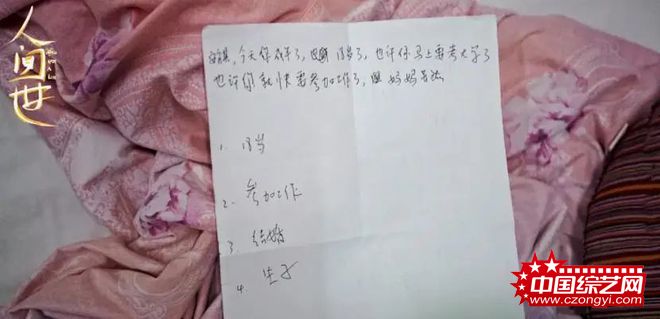 人间世
今天你成年了,18岁了,也许你马上要考大学了
也许你就快要参加工作了,但妈妈
1. 18岁
2. 参加工作
3. 结婚
4. 生子
中国综艺网
www.czongyi.com